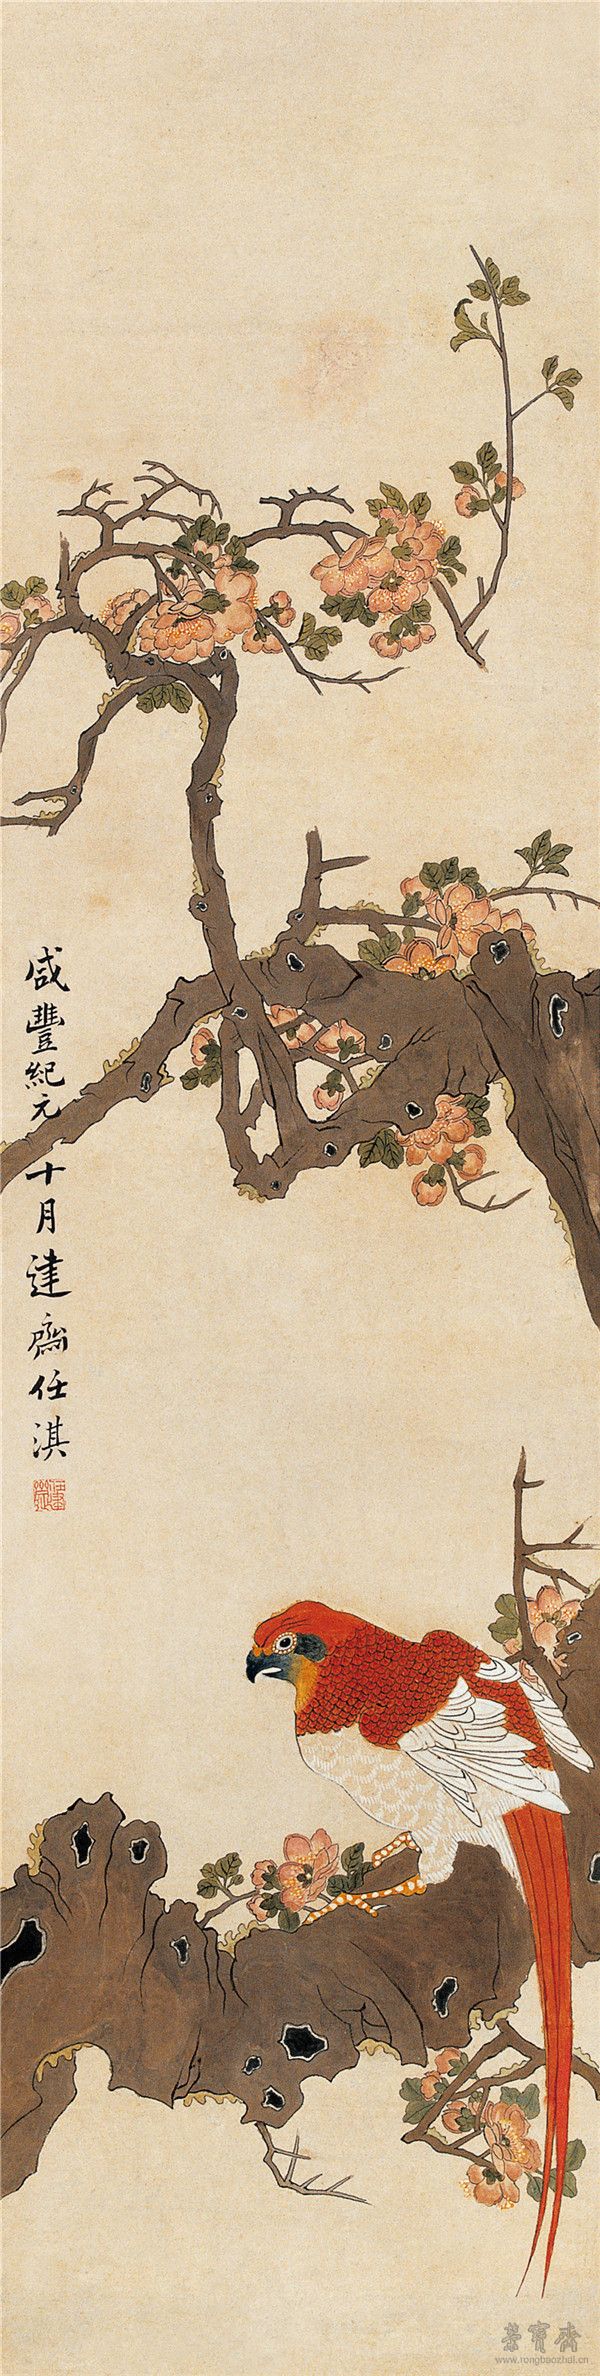 咸豐紀元十月建齋任淇
榮寶齋
www.rongbaozhai.cn